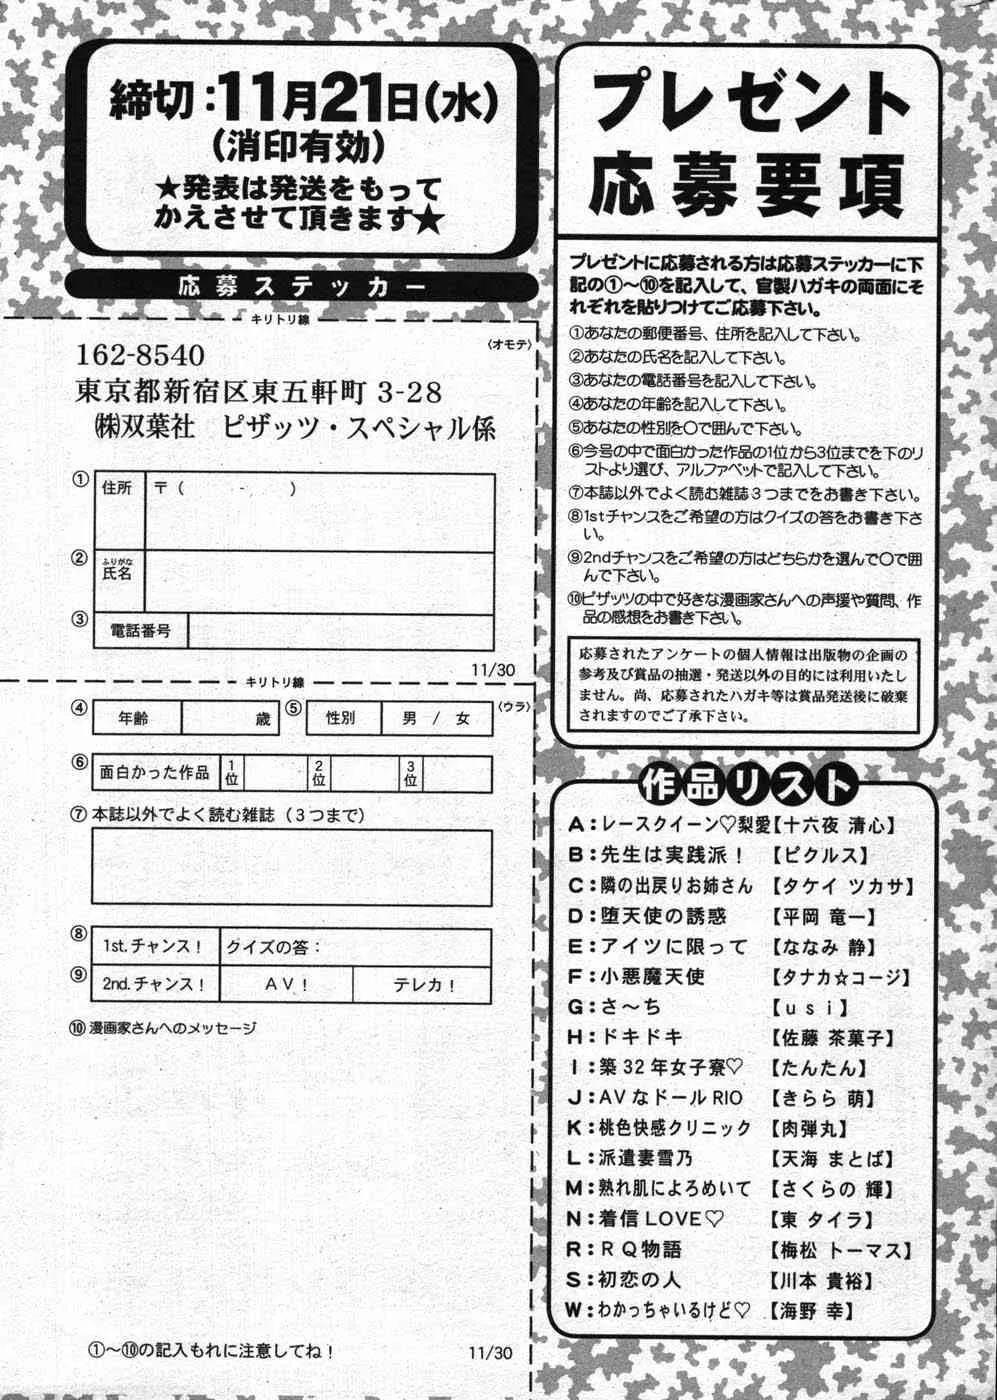 締切：11月21日（水）
（消印有効）
★発表は発送をもって
かえさせて頂きます★
応募ステッカー
キリトリ線
〈オモテ〉
162-8540
東京都新宿区東五軒町 3-28
㈱双葉社　ピザッツ・スペシャル係
① 住所 〒（　　-　　）
② ふりがな
氏名
③ 電話番号
11/30
キリトリ線
〈ウラ〉
④ 年齢 歳 ⑤ 性別 男 / 女
⑥ 面白かった作品 1位 2位 3位
⑦ 本誌以外でよく読む雑誌（３つまで）
⑧ 1st.チャンス！ クイズの答：
⑨ 2nd.チャンス！ ＡＶ！ テレカ！
⑩ 漫画家さんへのメッセージ
①～⑩の記入もれに注意してね！
11/30
プレゼント
応募要項
プレゼントに応募される方は応募ステッカーに下
記の①～⑩を記入して、官製ハガキの両面にそ
れぞれを貼りつけてご応募下さい。
①あなたの郵便番号、住所を記入して下さい。
②あなたの氏名を記入して下さい。
③あなたの電話番号を記入して下さい。
④あなたの年齢を記入して下さい。
⑤あなたの性別を〇で囲んで下さい。
⑥今号の中で面白かった作品の1位から3位までを下のリ
ストより選び、アルファベットで記入して下さい。
⑦本誌以外でよく読む雑誌３つまでをお書き下さい。
⑧1stチャンスをご希望の方はクイズの答をお書き下さ
い。
⑨2ndチャンスをご希望の方はどちらかを選んで〇で囲
んで下さい。
⑩ピザッツの中で好きな漫画家さんへの声援や質問、作
品の感想をお書き下さい。
応募されたアンケートの個人情報は出版物の企画の
参考及び賞品の抽選・発送以外の目的には利用いたし
ません。尚、応募されたハガキ等は賞品発送後に破棄
されますのでご了承下さい。
作品リスト
A：レースクイーン♡梨愛【十六夜 清心】
B：先生は実践派！【ピクルス】
C：隣の出戻りお姉さん【タケイ ツカサ】
D：堕天使の誘惑【平岡 竜一】
E：アイツに限って【ななみ 静】
F：小悪魔天使【タナカ☆コージ】
G：さ～ち【ｕｓｉ】
H：ドキドキ【佐藤 茶菓子】
I：築32年女子寮♡【たんたん】
J：AVなドールRIO【きらら 萌】
K：桃色快感クリニック【肉弾丸】
L：派遣妻雪乃【天海 まとば】
M：熟れ肌によろめいて【さくらの 輝】
N：着信LOVE♡【東 タイラ】
R：ＲＱ物語【梅松 トーマス】
S：初恋の人【川本 貴裕】
W：わかっちゃいるけど♡【海野 幸】